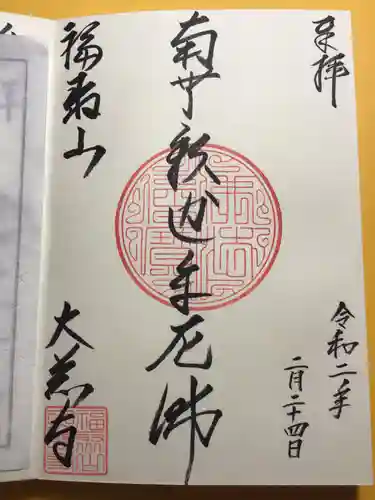 奉拝
令和二年
二月二十四日
南無釈迦牟尼佛
福聚山
大慈寺